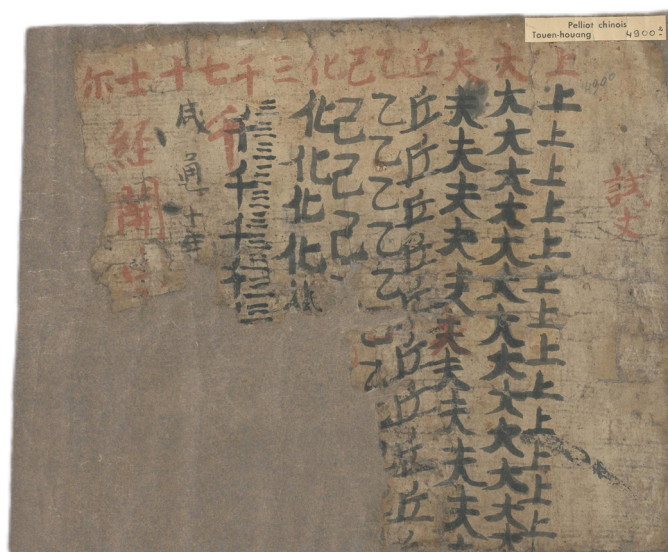 Pelliot chinois
Touen-houang 4900 2
4900
試文
上大夫丘乙己化三千七十士尔
上上上上上上上上上上上上上
大大大大大大大大大大大大大
夫夫夫夫夫夫夫夫夫夫
丘丘丘丘丘丘丘丘丘
乙乙乙乙乙乙
己己己
化化化化
三三三三三三三三
千千千千
千
咸通十年
經開